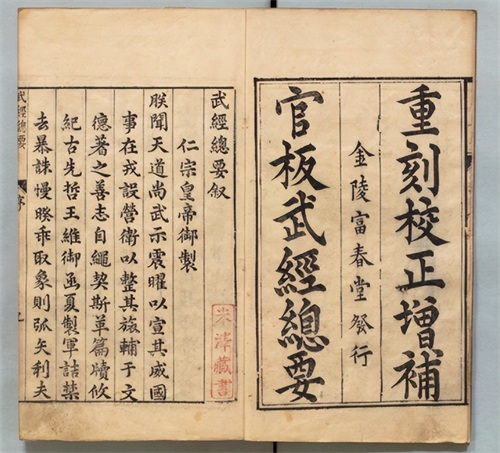 重刻校正增補
金陵富春堂發行
官板武經總要
武經總要敘
仁宗皇帝御製
朕聞天道尚武示震曜以宣其威國
事在戎設營衛以整其旅輔于文
德著之善志自繩契斯革篇牘攸
紀古先哲王維御函夏製軍詰禁
去暴誅慢暌乖取象則弧矢利夫
武經總要
序